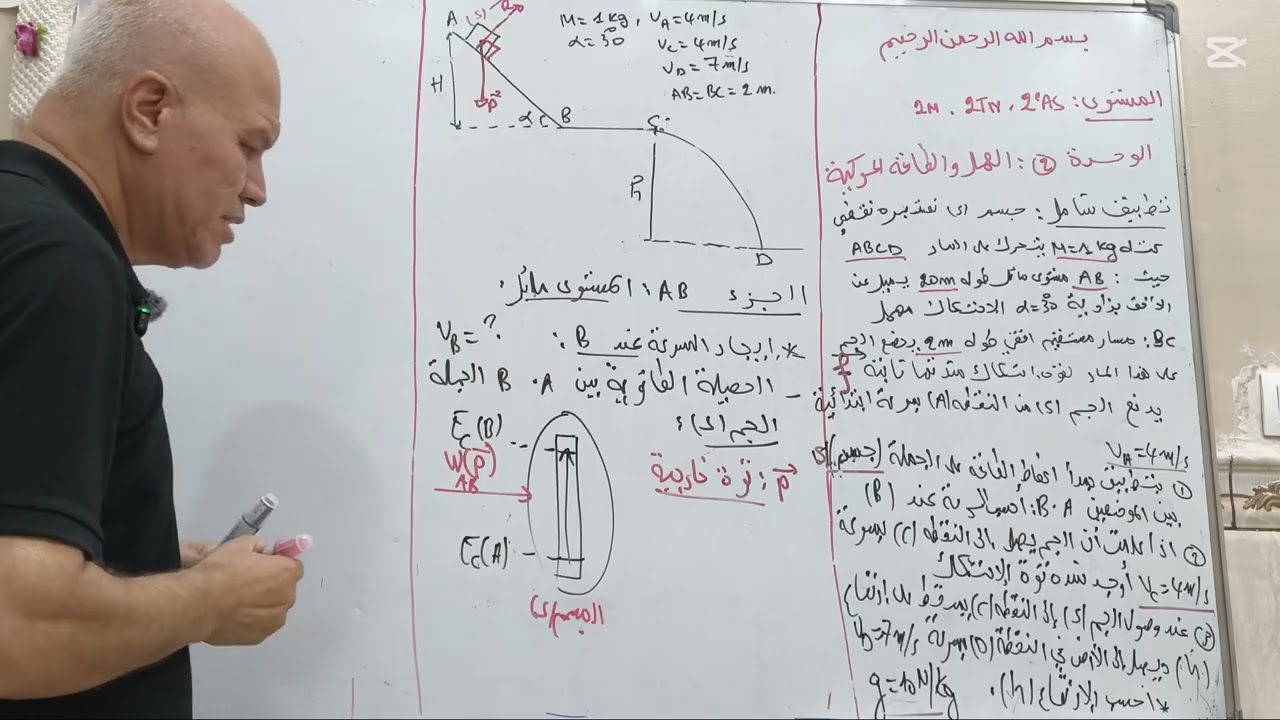 بسم الله الرحمن الرحيم
المستوى: 2M . 2TM . 2°AS
الوحدة ②: العمل والطاقة الحركية
تطبيق شامل: جسم (S) نعتبره نقطي
كتلته M=1kg يتحرك على المسار ABCD
حيث: AB مستوى مائل طوله 2m يميل عن
الافق بزاوية α=30° الاحتكاك مهمل
BC: مسار مستقيم افقي طوله 2m يخضع الجسم
على هذا المسار لقوة احتكاك شدتها ثابتة f
يدفع الجسم (S) من النقطة (A) بسرعة ابتدائية
V_A=4m/s
① بتطبيق مبدأ انحفاظ الطاقة على الجملة (جسم) (S)
بين الموضعين A . B: أحسب السرعة عند (B)
② اذا علمت أن الجسم يصل إلى النقطة (C) بسرعة
V_C=4m/s أوجد شدة قوة الاحتكاك
③ عند وصول الجسم (S) إلى النقطة (C) يسقط على ارتفاع
(h) ويصل إلى الأرض في النقطة (D) بسرعة V_D=7m/s
* احسب الارتفاع (h). g=10N/kg
M=1kg , V_A=4m/s
α=30° V_C=4m/s
V_D=7m/s
AB=BC=2m.
A (S) R
H
P
α B C
h
D
الجزء AB: المستوى مائل.
*. إيجاد السرعة عند B: V_B=?
- الحصيلة الطاقوية بين A . B الجملة
الجسم (S):
P: قوة خارجية
E_C(B)
W(P)
AB
E_C(A)
الجسم (S)